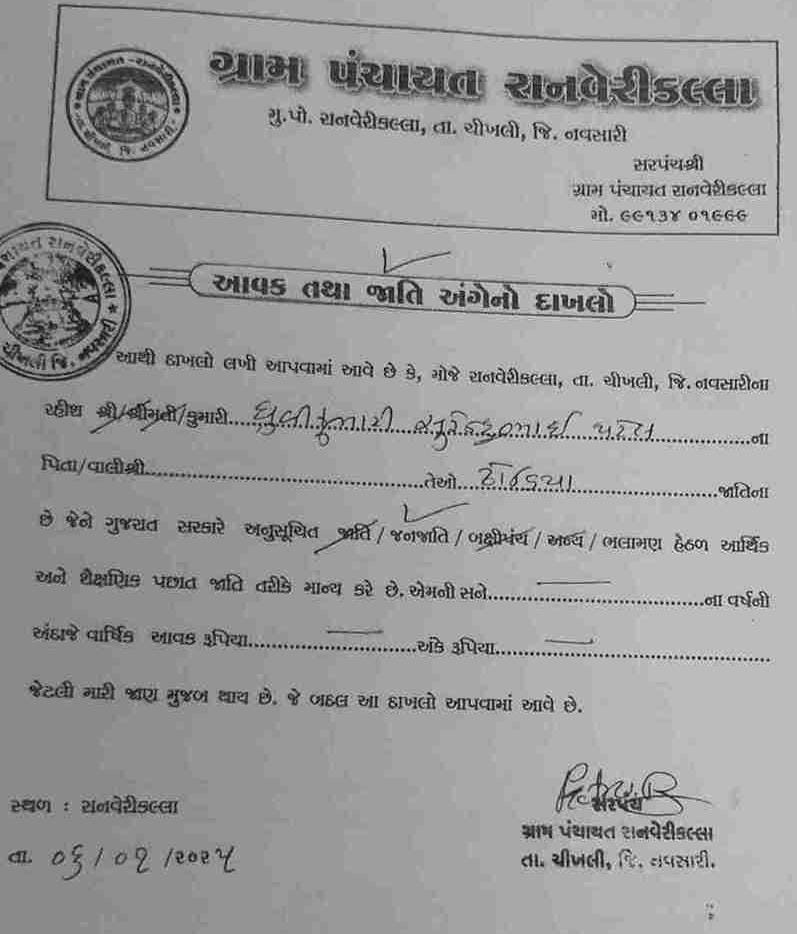 ગ્રામ પંચાયત રાનવેરીકલ્લા
મુ.પો. રાનવેરીકલ્લા, તા. ચીખલી, જિ. નવસારી
સરપંચશ્રી
ગ્રામ પંચાયત રાનવેરીકલ્લા
મો. ૯૯૧૩૪ ૦૧૯૯૯
આવક તથા જાતિ અંગેનો દાખલો
આથી દાખલો લખી આપવામાં આવે છે કે, મોજે રાનવેરીકલ્લા, તા. ચીખલી, જિ. નવસારીના
રહીશ શ્રી/શ્રીમતી/કુમારી પટેલ ના
પિતા/વાલીશ્રી તેઓ ધોડિયા જાતિના
છે જેને ગુજરાત સરકારે અનુસૂચિત જાતિ / જનજાતિ / બક્ષીપંચ / અન્ય / ભલામણ હેઠળ આર્થિક
અને શૈક્ષણિક પછાત જાતિ તરીકે માન્ય કરે છે. એમની સને ના વર્ષની
અંદાજે વાર્ષિક આવક રૂપિયા અંકે રૂપિયા
જેટલી મારી જાણ મુજબ થાય છે. જે બદલ આ દાખલો આપવામાં આવે છે.
સ્થળ : રાનવેરીકલ્લા
સરપંચ
ગ્રામ પંચાયત રાનવેરીકલ્લા
તા. ૦૬/૦૧/૨૦૨૫
તા. ચીખલી, જિ. નવસારી.